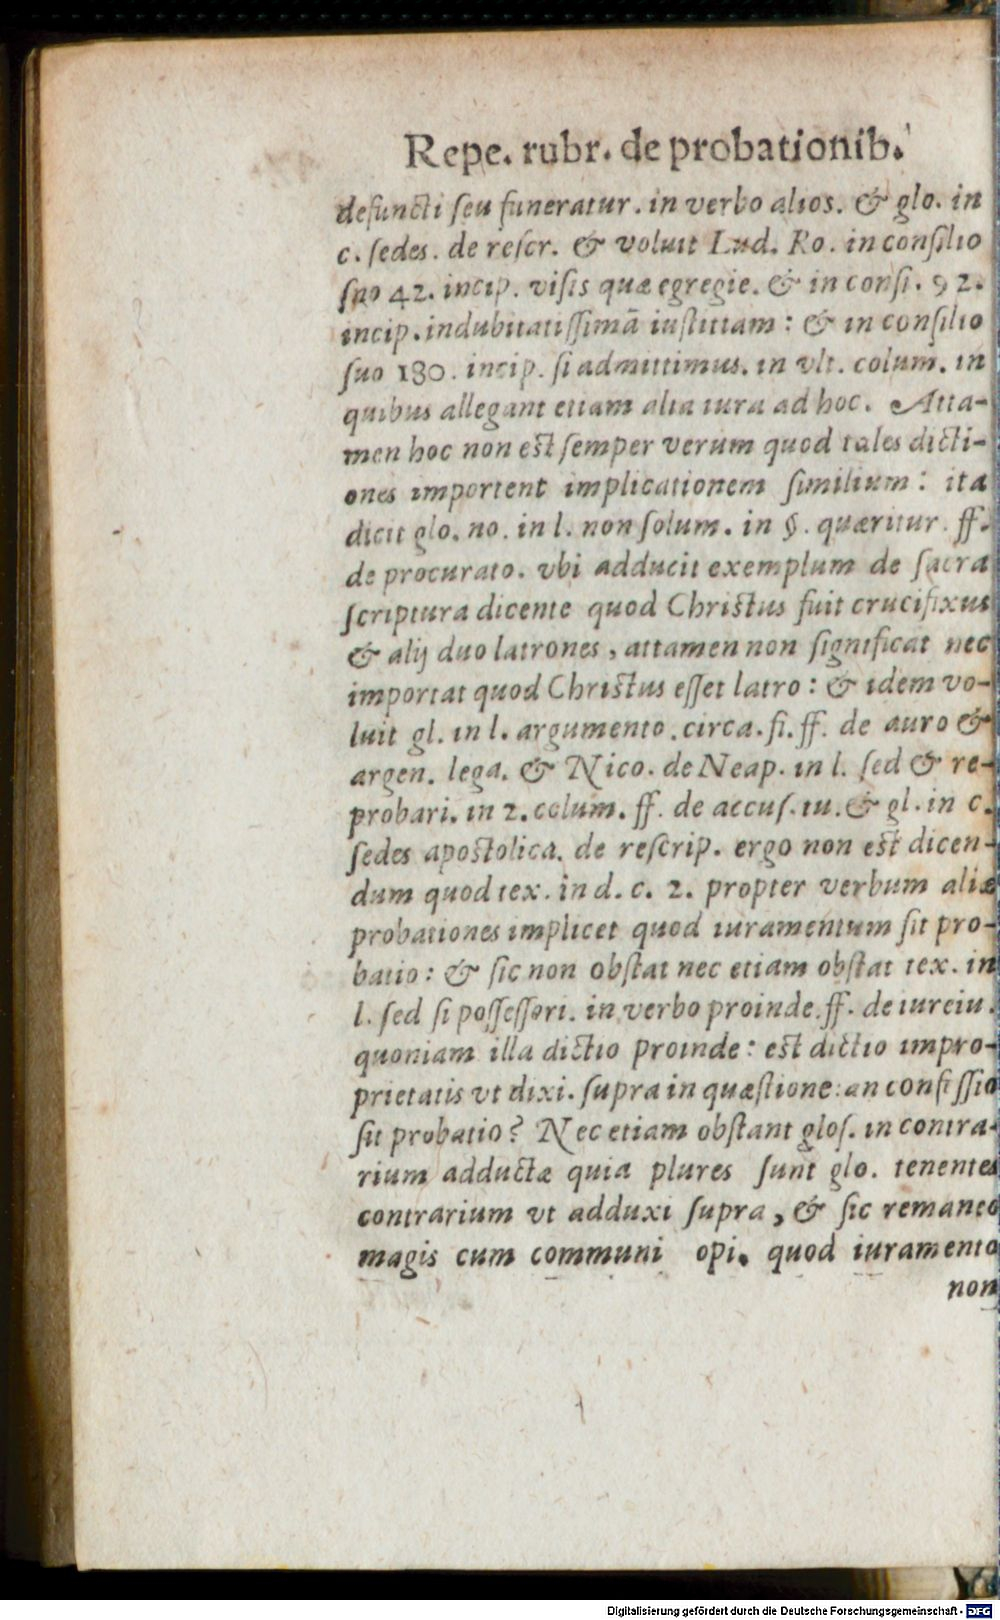 Repe. rubr. de probationib.
defuncti ſeu funeratur. in verbo alios. & glo. in
c. ſedes. de reſcr. & voluit Lud. Ro. in conſilio
ſuo 42. incip. viſis quæ egregie. & in conſi. 92.
incip. indubitatiſſimā iuſtitiam: & in conſilio
ſuo 180. incip. ſi admittimus. in vlt. colum. in
quibus allegant etiam alia iura ad hoc. Atta-
men hoc non est ſemper verum quod tales dicti-
ones importent implicationem ſimilium: ita
dicit glo. no. in l. non ſolum. in §. quæritur. ff.
de procurato. vbi adducit exemplum de ſacra
ſcriptura dicente quod Christus fuit crucifixus
& alij duo latrones, attamen non ſignificat nec
importat quod Christus eſſet latro: & idem vo-
luit gl. in l. argumento. circa. fi. ff. de auro &
argen. lega. & Nico. de Neap. in l. ſed & re-
probari. in 2. colum. ff. de accuſ. tu. & gl. in c.
ſedes apostolica. de reſcrip. ergo non est dicen-
dum quod tex. in d. c. 2. propter verbum aliæ
probationes implicet quod iuramentum ſit pro-
batio: & ſic non obſtat nec etiam obſtat tex. in
l. ſed ſi poſſeſſori. in verbo proinde. ff. de iureiu.
quoniam illa dictio proinde: est dictio impro-
prietatis vt dixi. ſupra in quæſtione: an confeſſio
ſit probatio? Nec etiam obſtant gloſ. in contra-
rium adductæ quia plures ſunt glo. tenentes
contrarium vt adduxi ſupra, & ſic remaneo
magis cum communi opi. quod iuramento
non
Digitalisierung gefördert durch die Deutsche Forschungsgemeinschaft - DFG